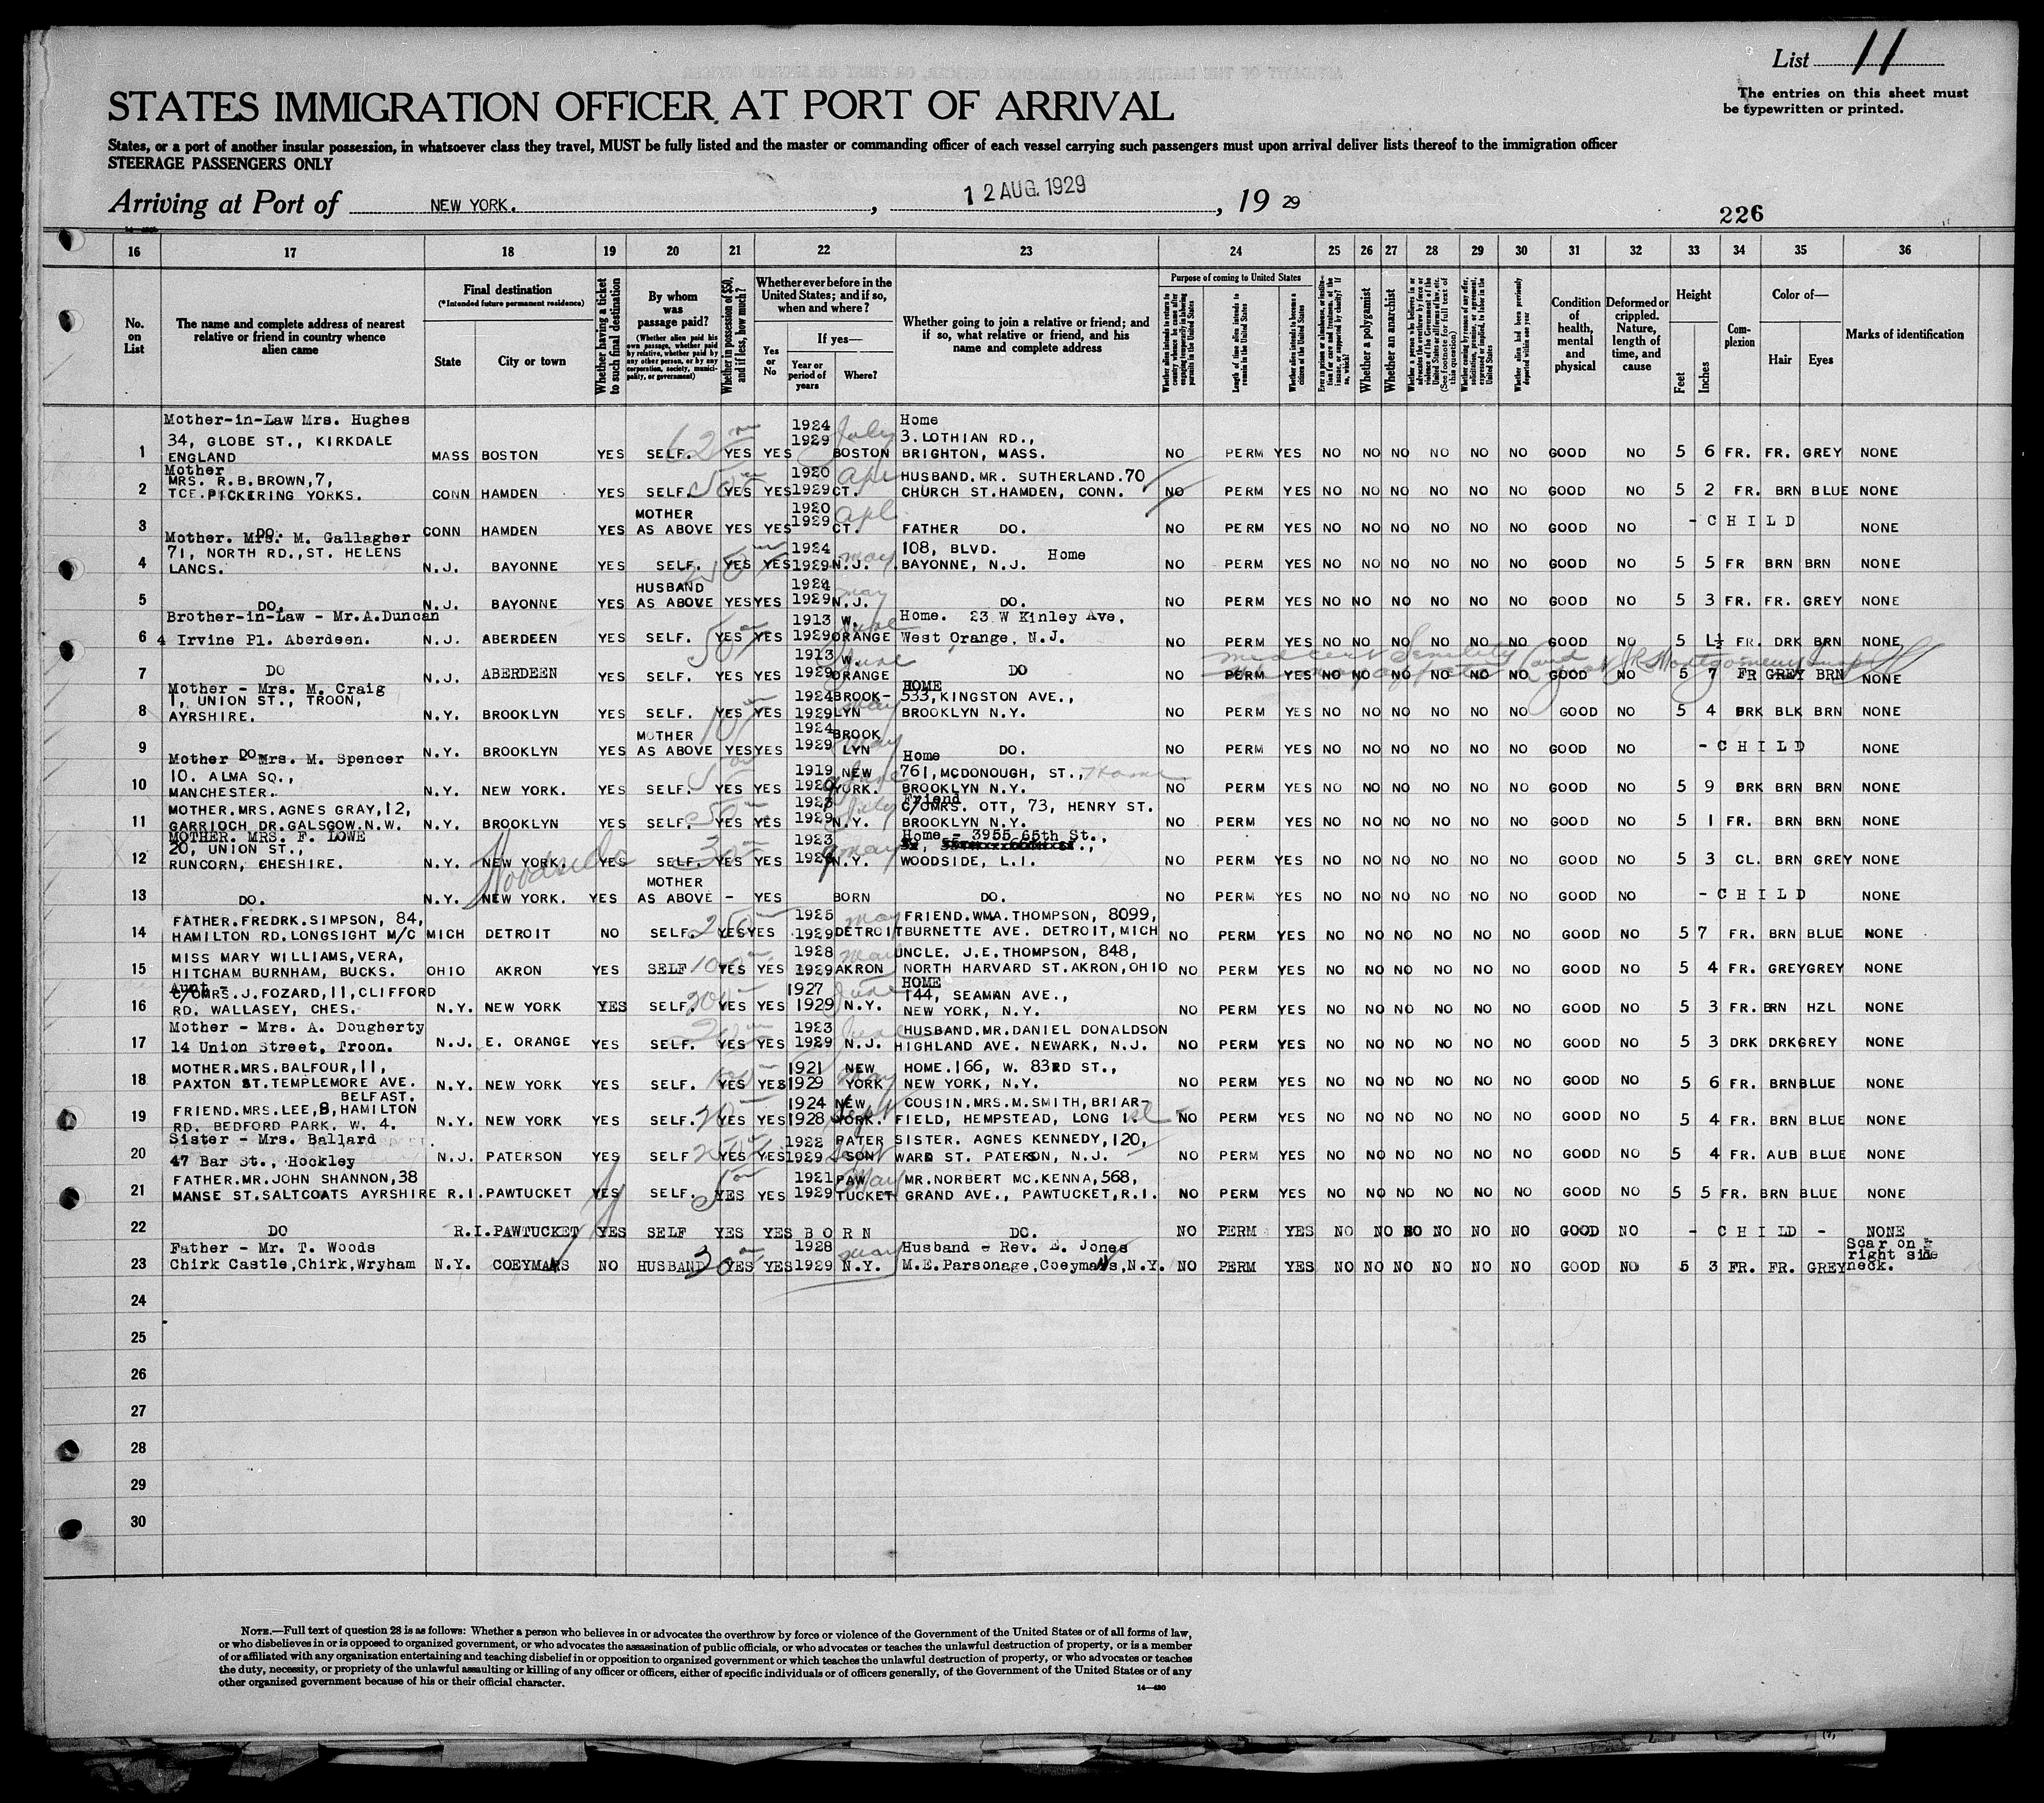 List 11
The entries on this sheet must
be typewritten or printed.
STATES IMMIGRATION OFFICER AT PORT OF ARRIVAL
States, or a port of another insular possession, in whatsoever class they travel, MUST be fully listed and the master or commanding officer of each vessel carrying such passengers must upon arrival deliver lists thereof to the immigration officer
STEERAGE PASSENGERS ONLY
Arriving at Port of NEW YORK. , 12 AUG. 1929 , 19 29
226
16 17 18 19 20 21 22 23 24 25 26 27 28 29 30 31 32 33 34 35 36
No. on List
The name and complete address of nearest relative or friend in country whence alien came
Final destination
(*Intended future permanent residence)
State City or town
Whether having a ticket to such final destination
By whom was passage paid?
(Whether alien paid his own passage, whether paid by relative, whether paid by any other person, or by any corporation, society, municipality, or government)
Whether in possession of $50, and if less, how much?
Whether ever before in the United States; and if so, when and where?
Yes or No
If yes—
Year or period of years
Where?
Whether going to join a relative or friend; and if so, what relative or friend, and his name and complete address
Purpose of coming to United States
Length of time alien intends to remain in the United States
Whether alien intends to become a citizen of the United States
Whether a polygamist
Whether an anarchist
Condition of health, mental and physical
Deformed or crippled. Nature, length of time, and cause
Height
Feet Inches
Complexion
Color of—
Hair Eyes
Marks of identification
Mother-in-Law Mrs. Hughes 1924 Home
34, GLOBE ST., KIRKDALE 1929 July 3. LOTHIAN RD.,
1 ENGLAND MASS BOSTON YES SELF. YES YES BOSTON BRIGHTON, MASS. NO PERM YES NO NO NO NO NO NO GOOD NO 5 6 FR. FR. GREY NONE
Mother
MRS. R.B.BROWN,7, 1920 HUSBAND.MR. SUTHERLAND.70
2 TCE.PICKERING YORKS. CONN HAMDEN YES SELF. YES YES 1929 CT. CHURCH ST.HAMDEN, CONN. NO PERM YES NO NO NO NO NO NO GOOD NO 5 2 FR. BRN BLUE NONE
MOTHER 1920
3 DO. CONN HAMDEN YES AS ABOVE YES YES 1929 CT. FATHER DO. NO PERM YES NO NO NO NO NO NO GOOD NO - CHILD NONE
Mother. Mrs. M. Gallagher
71, NORTH RD.,ST. HELENS 1924 108, BLVD. Home
4 LANCS. N.J. BAYONNE YES SELF. YES YES 1929 May N.J. BAYONNE, N.J. NO PERM YES NO NO NO NO NO NO GOOD NO 5 5 FR BRN BRN NONE
HUSBAND 1924
5 DO. N.J. BAYONNE YES AS ABOVE YES YES 1929 May N.J. DO. NO PERM YES NO NO NO NO NO NO GOOD NO 5 3 FR. FR. GREY NONE
Brother-in-Law - Mr.A.Duncan 1913 W. Home. 23 W Kinley Ave,
6 4 Irvine Pl. Aberdeen. N.J. ABERDEEN YES SELF. YES YES 1929 June ORANGE West Orange, N.J. NO PERM YES NO NO NO NO NO NO GOOD NO 5 1½ FR. DRK BRN NONE
1913 W.
7 DO N.J. ABERDEEN YES SELF. YES YES 1929 June ORANGE DO NO PERM YES NO NO NO NO NO NO GOOD NO 5 7 FR GREY BRN NONE
Mother - Mrs. M. Craig HOME
1, UNION ST., TROON, 1924 BROOK- 533,KINGSTON AVE.,
8 AYRSHIRE. N.Y. BROOKLYN YES SELF. YES YES 1929 May LYN BROOKLYN N.Y. NO PERM YES NO NO NO NO NO NO GOOD NO 5 4 DRK BLK BRN NONE
MOTHER 1924 BROOK
9 DO N.Y. BROOKLYN YES AS ABOVE YES YES 1929 May LYN DO. NO PERM YES NO NO NO NO NO NO GOOD NO - CHILD NONE
Mother - Mrs. M. Spencer Home
10. ALMA SQ., 1919 NEW 761,MCDONOUGH, ST., Home
10 MANCHESTER. N.Y. NEW YORK. YES SELF. YES YES 1929 June YORK. BROOKLYN N.Y. NO PERM YES NO NO NO NO NO NO GOOD NO 5 9 DRK BRN BRN NONE
MOTHER.MRS.AGNES GRAY,12, 1923 July Friend C/OMRS. OTT, 73, HENRY ST.
11 GARRIOCH DR.GALSGOW.N.W. N.Y. BROOKLYN YES SELF. YES YES 1929 N.Y. BROOKLYN N.Y. NO PERM YES NO NO NO NO NO NO GOOD NO 5 1 FR. BRN BRN NONE
MOTHER. MRS. F. LOWE Home - 3955 65th St.,
20, UNION ST., 1923
12 RUNCORN, CHESHIRE. N.Y. NEW YORK. Woodside YES SELF. YES YES 1929 May N.Y. WOODSIDE, L.I. NO PERM YES NO NO NO NO NO NO GOOD NO 5 3 CL. BRN GREY NONE
MOTHER
13 DO. N.Y. NEW YORK. YES AS ABOVE - YES BORN DO. NO PERM YES NO NO NO NO NO NO GOOD NO - CHILD NONE
FATHER.FREDRK.SIMPSON, 84, 1925 May FRIEND.WMA.THOMPSON, 8099,
14 HAMILTON RD.LONGSIGHT M/C MICH DETROIT NO SELF. YES YES 1929 DETROIT BURNETTE AVE. DETROIT,MICH NO PERM YES NO NO NO NO NO NO GOOD NO 5 7 FR. BRN BLUE NONE
MISS MARY WILLIAMS,VERA, 1928 UNCLE. J.E.THOMPSON, 848,
15 HITCHAM BURNHAM, BUCKS. OHIO AKRON YES SELF YES YES 1929 AKRON NORTH HARVARD ST.AKRON,OHIO NO PERM YES NO NO NO NO NO NO GOOD NO 5 4 FR. GREY GREY NONE
Aunt - HOME
C/OMRS.J.FOZARD,11,CLIFFORD 1927 June 144, SEAMAN AVE.,
16 RD. WALLASEY, CHES. N.Y. NEW YORK YES SELF. YES YES 1929 N.Y. NEW YORK, N.Y. NO PERM YES NO NO NO NO NO NO GOOD NO 5 3 FR. BRN HZL NONE
Mother - Mrs. A. Dougherty 1923 HUSBAND.MR.DANIEL DONALDSON
17 14 Union Street, Troon. N.J. E. ORANGE YES SELF. YES YES 1929 N.J. HIGHLAND AVE. NEWARK, N.J. NO PERM YES NO NO NO NO NO NO GOOD NO 5 3 DRK DRK GREY NONE
MOTHER.MRS.BALFOUR,11, 1921 NEW HOME.166, W. 83RD ST.,
18 PAXTON ST.TEMPLEMORE AVE. N.Y. NEW YORK YES SELF. YES YES 1929 YORK NEW YORK, N.Y. NO PERM YES NO NO NO NO NO NO GOOD NO 5 6 FR. BRN BLUE NONE
BELFAST.
FRIEND.MRS.LEE,8,HAMILTON 1924 NEW COUSIN.MRS.M.SMITH,BRIAR-
19 RD. BEDFORD PARK. W. 4. N.Y. NEW YORK YES SELF. YES YES 1928 Sept YORK. FIELD, HEMPSTEAD, LONG Isl NO PERM YES NO NO NO NO NO NO GOOD NO 5 4 FR. BRN BLUE NONE
Sister - Mrs. Ballard 1922 PATER SISTER. AGNES KENNEDY,120,
20 47 Bar St., Hockley N.J. PATERSON YES SELF YES YES 1929 SON WARD ST. PATERSON, N.J. NO PERM YES NO NO NO NO NO NO GOOD NO 5 4 FR. AUB BLUE NONE
FATHER.MR.JOHN SHANNON,38 1921 PAW May MR.NORBERT MC.KENNA,568,
21 MANSE ST.SALTCOATS AYRSHIRE R.I. PAWTUCKET YES SELF. YES YES 1929 TUCKET GRAND AVE., PAWTUCKET,R.I. NO PERM YES NO NO NO NO NO NO GOOD NO 5 5 FR. BRN BLUE NONE
22 DO R.I. PAWTUCKET YES SELF YES YES BORN DO. NO PERM YES NO NO NO NO NO NO GOOD NO - CHILD - NONE
Father - Mr. T. Woods 1928 May Husband - Rev. E. Jones Scar on
right side
23 Chirk Castle,Chirk,Wryham N.Y. COEYMANS NO HUSBAND YES YES 1929 N.Y. M.E.Parsonage,Coeymans,N.Y. NO PERM YES NO NO NO NO NO NO GOOD NO 5 3 FR. FR. GREY neck.
24
25
26
27
28
29
30
NOTE.—Full text of question 28 is as follows: Whether a person who believes in or advocates the overthrow by force or violence of the Government of the United States or of all forms of law,
or who disbelieves in or is opposed to organized government, or who advocates the assassination of public officials, or who advocates or teaches the unlawful destruction of property, or is a member
of or affiliated with any organization entertaining and teaching disbelief in or opposition to organized government or which teaches the unlawful destruction of property, or who advocates or teaches
the duty, necessity, or propriety of the unlawful assaulting or killing of any officer or officers, either of specific individuals or of officers generally, of the Government of the United States or of any
other organized government because of his or their official character.
14—430